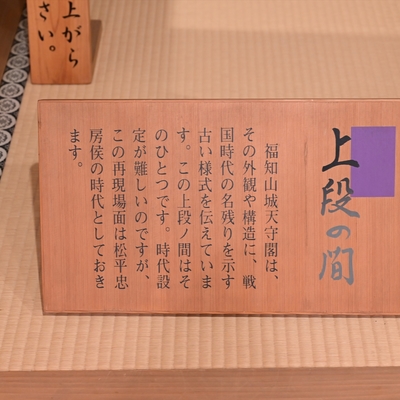 上がら
さい。
上段の間
福知山城天守閣は、
その外観や構造に、戦
国時代の名残りを示す
古い様式を伝えていま
す。この上段ノ間はそ
のひとつです。時代設
定が難しいのですが、
この再現場面は松平忠
房侯の時代としておき
ます。